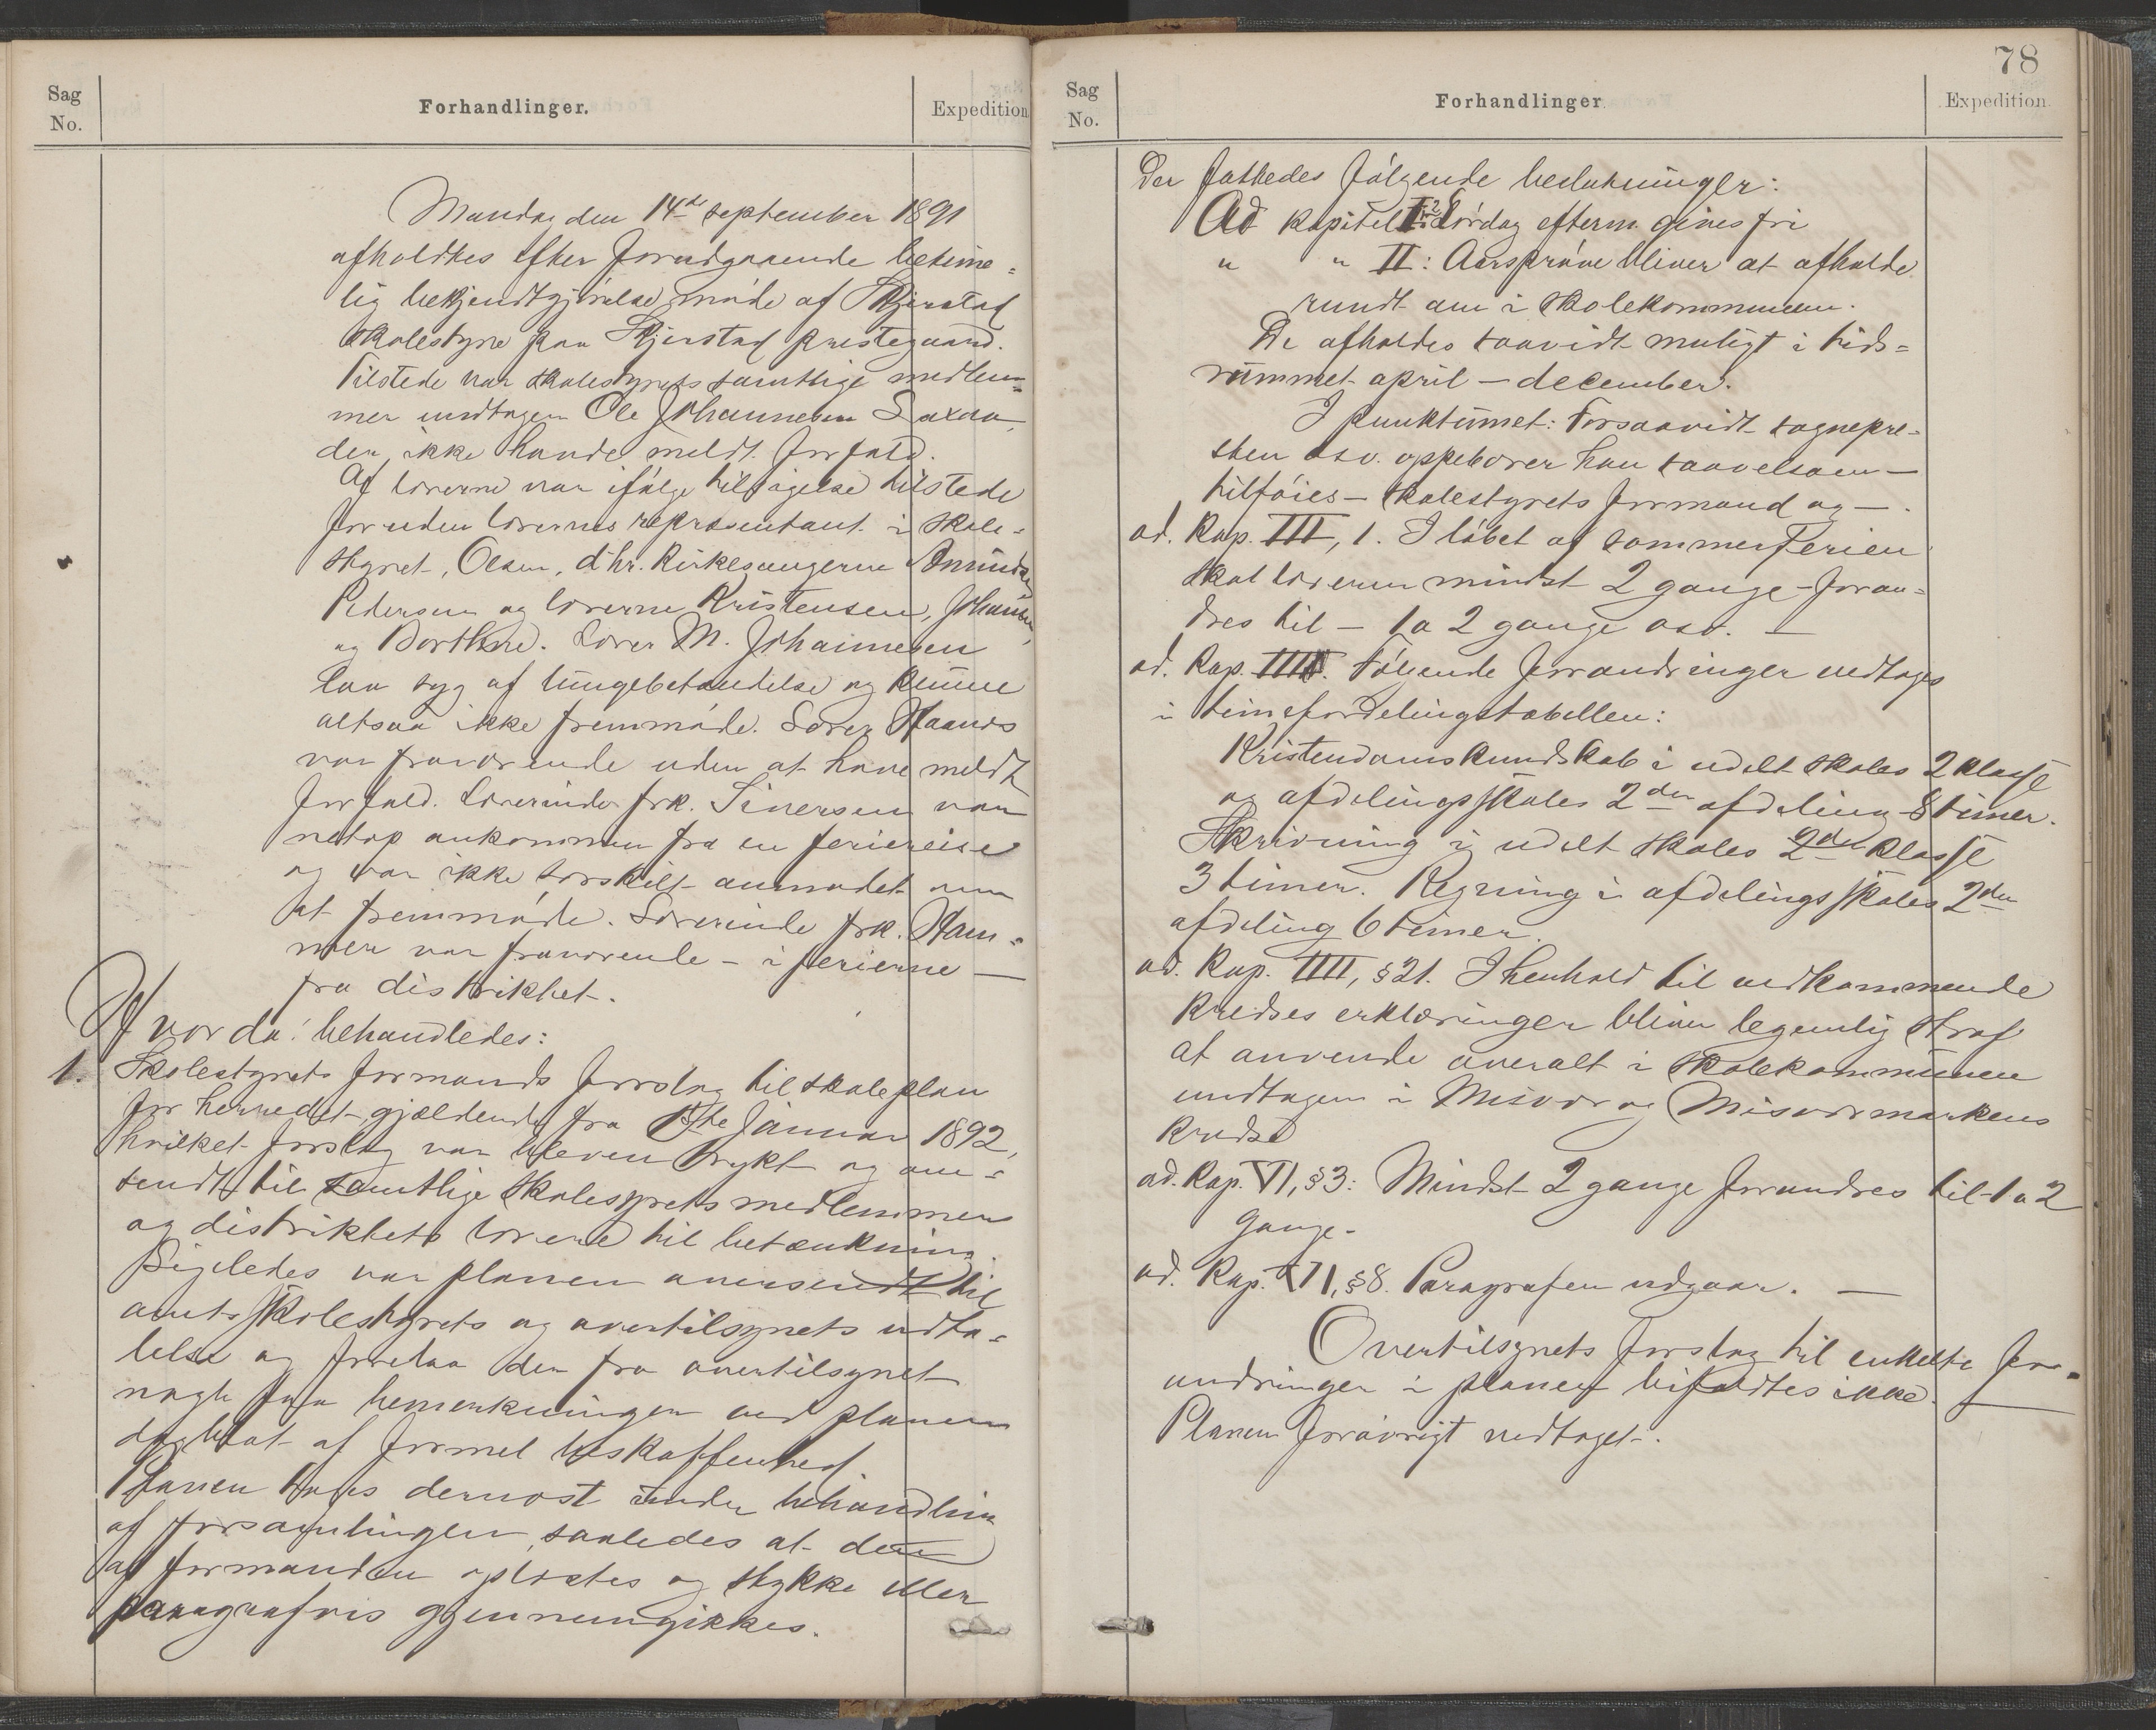 Sag
No.
Forhandlinger.
Expedition
Mandag den 14de september 1891
afholdtes efter forudgaaende betime=
lig bekjendtgjørelse møde af Skjerstad
skolestyre paa Skjerstad prestegaard.
Tilstede var skolestyrets samtlige medlem=
mer undtagen Ole Johannesen
der ikke havde meldt forfald.
Af lærerne var ifølge tilsigelse tilstede
foruden lærernes repræsentant i skole=
styret, Olsen, d'hr. kirkesangerne
Pedersen og lærerne Kristensen,
og. Lærer M. Johannesen
laa syg af lungebetændelse og kunne
altsaa ikke fremmøde. Lærer
var fraværende uden at have meldt
forfald. Lærerinde frk. Siversen var
netop ankommen fra en feriereise
og var ikke særskilt anmodet om
at fremmøde. Lærerinde frk. Ham=
mer var fraværende – i ferierne –
fra distriktet.
Hvorda behandledes:
1. Skolestyrets formands forslag til skoleplan
for herredet, gjældende fra 1ste Januar 1892,
hvilket forslag var bleven trykt og om=
sendt til samtlige skolestyrets medlemmer
og distriktets lærere til betænkning.
Ligeledes var planen oversendt til
amtsskolestyrets og overtilsynets udta=
lelse og forelaa der fra overtilsynet
nogle faa bemerkninger ved planen
dog blot af formel beskaffenhed.
Planen toges dernæst under behandling
af forsamlingen, saaledes at den
af formanden oplæstes og stykke eller
paragrafvis gjennemgikkes.
78
Sag
No.
Forhandlinger.
Expedition.
Der fattedes følgende beslutninger:
Ad kapitel I 2 Lørdag efterm. gives fri
" " II: Aarsprøve bliver at afholde
rundt om i skolekommunen.
De afholdes saavidt muligt i tids=
rummet april – december.
I punktumet: Forsaavidt sognepre=
sten osv. oppebærer han saavelsom –
tilføies – skolestyrets formand og –.
ad. Kap. III, 1. I løbet af sommerferien
skal læreren mindst 2 gange – foran=
dres til – 1 a 2 gange osv. –
ad. Kap. IIII. Følgende forandringer vedtages
i timefordelingstabellen:
Kristendomskundskab i udelt skoles 2 klasse
og afdelingsskoles 2den afdeling 8 timer.
Skrivning i udelt skoles 2den klasse
3 timer. Regning i afdelingsskoles 2den
afdeling 6 timer.
ad. Kap. IIII, § 21. I henhold til vedkommende
kredses erklæringer bliver legemlig straf
at anvende overalt i skolekommunen
undtagen i Misvær og Misværmarkens
kreds
ad. Kap. VI, § 3: Mindst 2 gange forandres til 1 a 2
gange.
ad. Kap. VI, § 8. Paragrafen udgaar. –
Overtilsynets forslag til enkelte for=
andringer i planen bifaldtes ikke.
Planen forøvrigt vedtaget.